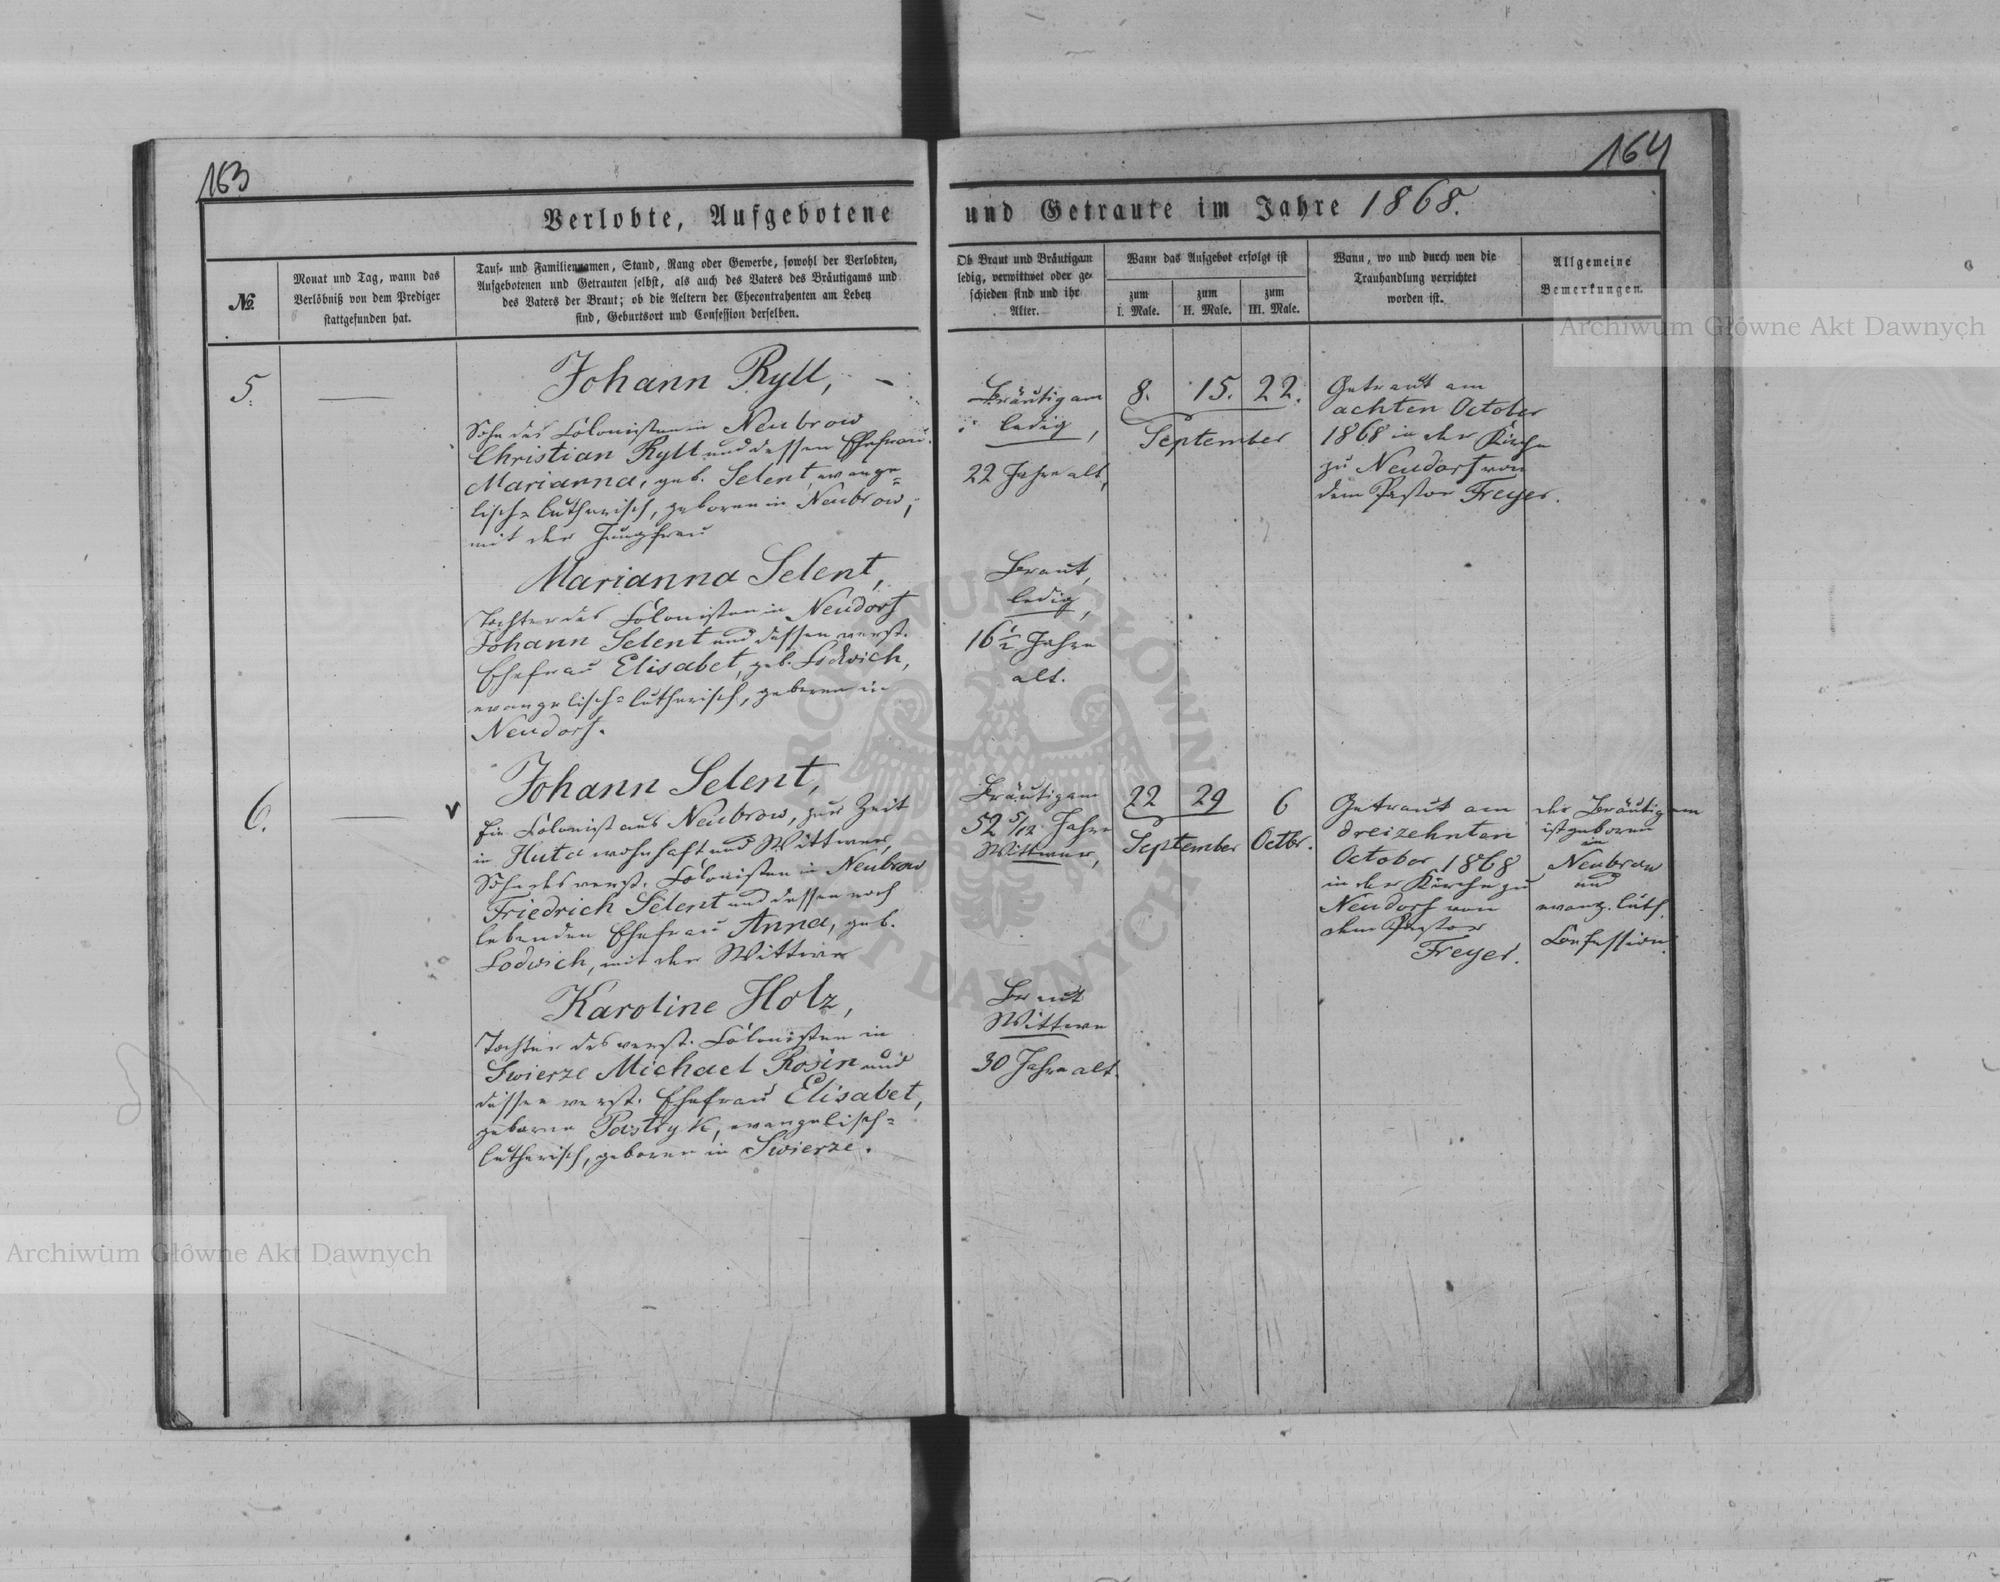 163
164
Verlobte, Aufgebotene und Getraute im Jahre 1868.
№
Monat und Tag, wann das
Verlöbniß von dem Prediger
stattgefunden hat.
Tauf- und Familiennamen, Stand, Rang oder Gewerbe, sowohl der Verlobten,
Aufgebotenen und Getrauten selbst, als auch des Vaters des Bräutigams und
des Vaters der Braut; ob die Aeltern der Ehecontrahenten am Leben
sind, Geburtsort und Confession derselben.
Ob Braut und Bräutigam
ledig, verwittwet oder ge-
schieden sind und ihr
Alter.
Wann das Aufgebot erfolgt ist
zum
I. Male.
zum
II. Male.
zum
III. Male.
Wann, wo und durch wen die
Trauhandlung verrichtet
worden ist.
Allgemeine
Bemerkungen.
5.
Johann Ryll,
Sohn des Colonisten in Neubrow
Christian Ryll und dessen Ehefrau
Marianna, geb. Selent, evange=
lisch=lutherisch, geboren in Neubrow,
mit der Jungfrau
Marianna Selent,
Tochter des Colonisten in Neudorf
Johann Selent und dessen verst.
Ehefrau Elisabet, geb. Lodwich,
evangelisch=lutherisch, geboren in
Neudorf.
Bräutigam
ledig,
22 Jahre alt,
Braut,
ledig,
16 1/2 Jahre
alt.
8. 15. 22.
September
Getraut am
achten October
1868 in der Kirche
zu Neudorf von
dem Pastor Freyer.
6.
Johann Selent,
Ein Colonist aus Neubrow, zur Zeit
in Huta wohnhaft und Wittwer,
Sohn des verst. Colonisten in Neubrow
Friedrich Selent und dessen noch
lebenden Ehefrau Anna, geb.
Lodwich, mit der Wittwe
Karoline Holz,
Tochter des verst. Colonisten in
Swierze Michael Rosin und
dessen verst. Ehefrau Elisabet,
geborne Pastryk, evangelisch=
lutherisch, geboren in Swierze.
Bräutigam
52 5/12 Jahre
Wittwer,
Braut
Wittwe
30 Jahre alt.
22 29 6
September Octbr.
Getraut am
dreizehnten
October 1868
in der Kirche zu
Neudorf von
dem Pastor
Freyer.
der Bräutigam
ist geboren
in
Neubrow
und
evang. luth.
Confession.
Archiwum Główne Akt Dawnych
Archiwum Główne Akt Dawnych
ARCHIWUM GŁÓWNE AKT DAWNYCH